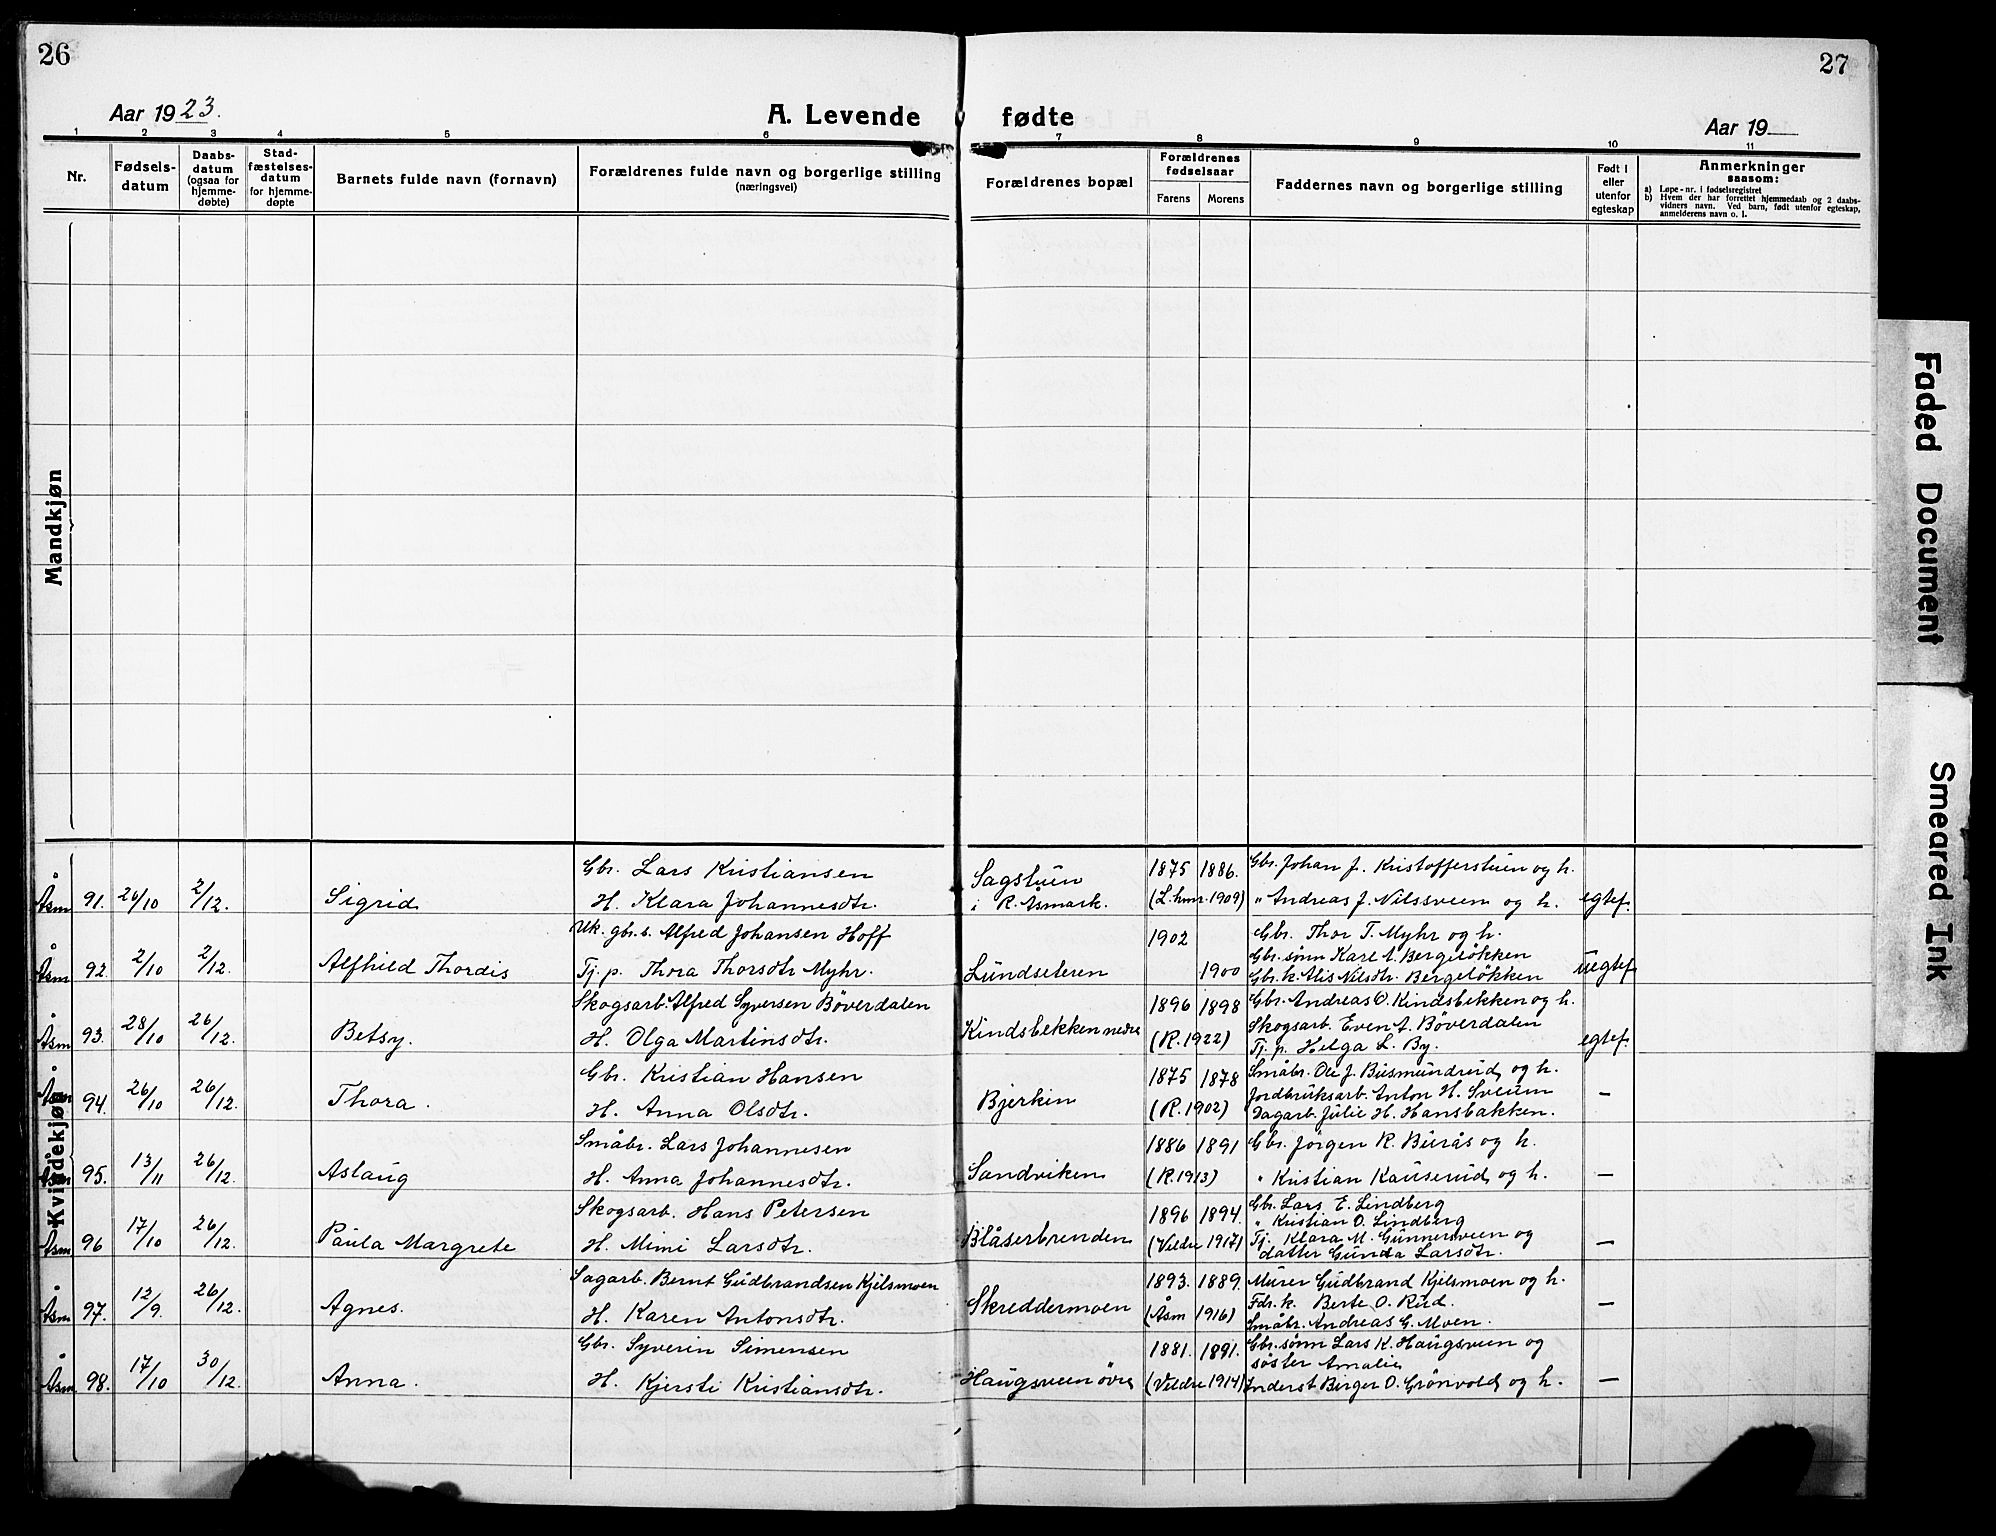 26
27
Aar 1923.
A. Levende fødte
Aar 19
1 2 3 4 5 6 7 8 9 10 11
Nr.
Fødsels-
datum
Daabs-
datum
(ogsaa for
hjemme-
døbte)
Stad-
fæstelses-
datum
for hjemme-
døpte
Barnets fulde navn (fornavn)
Forældrenes fulde navn og borgerlige stilling
(næringsvei)
Forældrenes bopæl
Forældrenes
fødselsaar
Farens Morens
Faddernes navn og borgerlige stilling
Født i
eller
utenfor
egteskap
Anmerkninger
saasom:
a) Løpe-nr. i fødselsregistret
b) Hvem der har forrettet hjemmedaab og 2 daabs-
vidners navn. Ved barn, født utenfor egteskap,
anmelderens navn o. l.
Mandkjøn
Kvindekjøn
Gbr. Lars Kristiansen Sagstuen 1875 1886. Gbr. Johan J. Kristofferstuen og h.
Åsm 91. 26/10 2/12. Sigrid H. Klara Johannesdtr. i R. Åsmark. (L.hmr. 1909) " Andreas J. Nilssveen og h. egtef.
Uk. gbr.s. Alfred Johansen Hoff 1902 Gbr. Thor T. Myhr og h.
Gbr. sønn Karl A. Bergeløkken
Åsm 92. 2/10 2/12. Alfhild Thordis Tj. p. Thora Thorsdtr Myhr. Lundseteren 1900 Gbr. k. Alis Nilsdtr. Bergeløkken uegtef.
Skogsarb. Alfred Syversen Bøverdalen 1896 1898 Gbr. Andreas O. Kindsbekken og h.
Skogsarb. Even A. Bøverdalen
Åsm 93. 28/10 26/12. Betsy. H. Olga Martinsdtr. Kindsbekken nedre (R. 1922) Tj. p. Helga L. By. egtef.
Gbr. Kristian Hansen 1875 1878 Småbr. Ole J. Busmundrud og h.
Jordbruksarb. Anton H. Sveum
Åsm 94. 26/10 26/12. Thora. H. Anna Olsdtr. Bjerkin (R. 1902) Dagarb. Julie H. Hansbakken. —
Småbr. Lars Johannesen 1886 1891 Gbr. Jörgen R. Burås og h.
Åsm 95. 13/11 26/12. Aslaug H. Anna Johannesdtr. Sandviken (R. 1913) " Kristian Kauserud og h. —
Skogsarb. Hans Petersen 1896 1894. Gbr. Lars E. Lindberg
" Kristian O. Lindberg
Åsm 96 17/10 26/12. Paula Margrete H. Mimi Larsdtr. Blåserbrenden (Veldre 1917) Tj. Klara M. Gunnersveen og —
datter Gunda Larsdtr.
Sagarb. Bernt Gudbrandsen Kjelsmoen 1893. 1889. Murer Gudbrand Kjelsmoen og h.
Åsm 97. 12/9. 26/12. Agnes. H. Karen Antonsdtr. Skreddermoen (Åsm 1916) Fdr. k. Berte O. Rud. —
Småbr. Andreas G. Moen.
Gbr. Syverin Simensen 1881. 1891. Gbr. sønn Lars K. Haugsveen og
søster Amalie
Åsm 98. 17/10 30/12. Anna. H. Kjersti Kristiansdtr. Haugsveen övre (Veldre 1914) Inderst Birger O. Grönvold og h. —
Faded Document
Smeared Ink